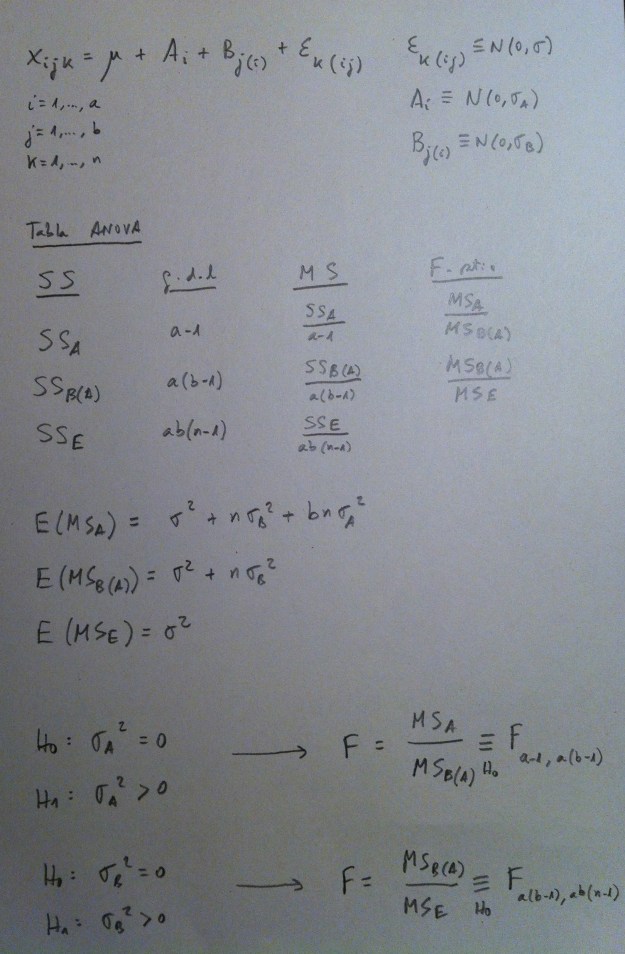 x_{ijk} = μ + A_i + B_{j(i)} + ε_{k(ij)}    ε_{k(ij)} ≡ N(0,σ)
i=1,...,a    A_i ≡ N(0,σ_A)
j=1,...,b    B_{j(i)} ≡ N(0,σ_B)
k=1,...,n
Tabla ANOVA
SS    g.d.l    MS    F-ratio
SS_A    a-1    SS_A/a-1    MS_A/MS_{B(A)}
SS_{B(A)}    a(b-1)    SS_{B(A)}/a(b-1)    MS_{B(A)}/MSE
SS_E    ab(n-1)    SSE/ab(n-1)
E(MS_A) = σ² + nσ_B² + bnσ_A²
E(MS_{B(A)}) = σ² + nσ_B²
E(MS_E) = σ²
H₀: σ_A² = 0 ⟶ F = MS_A/MS_{B(A)} ≡_{H₀} F_{a-1, a(b-1)}
H₁: σ_A² > 0
H₀: σ_B² = 0 ⟶ F = MS_{B(A)}/MSE ≡_{H₀} F_{a(b-1), ab(n-1)}
H₁: σ_B² > 0